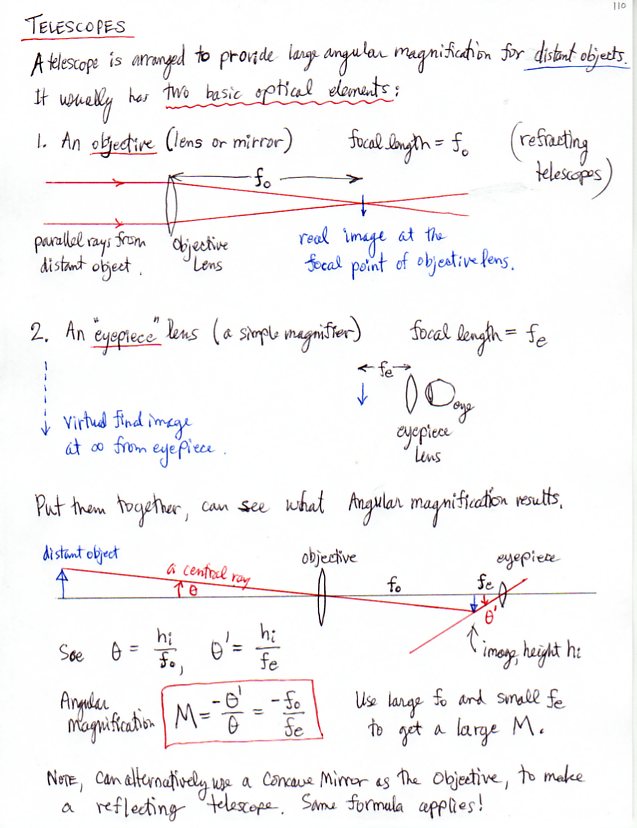 110
TELESCOPES
A telescope is arranged to provide large angular magnification for distant objects.
It usually has two basic optical elements:
1. An objective (lens or mirror) focal length = fo (refracting
telescopes)
fo
parallel rays from
distant object.
objective
Lens
real image at the
focal point of objective lens.
2. An "eyepiece" lens (a simple magnifier) focal length = fe
fe
eye
eyepiece
Lens
Virtual final image
at ∞ from eyepiece.
Put them together, can see what Angular magnification results.
distant object
objective
eyepiece
a central ray
θ
fo
fe
θ'
image, height hi
See θ = hi/fo, θ' = hi/fe
Angular
magnification M = -θ'/θ = -fo/fe
Use large fo and small fe
to get a large M.
NOTE, Can alternatively use a Concave Mirror as the Objective, to make
a reflecting telescope. Same formula applies!